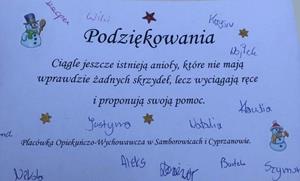 Kacper Wiki Kacper
Podziękowania
Wojtek
Ciągle jeszcze istnieją anioły, które nie mają
wprawdzie żadnych skrzydeł, lecz wyciągają ręce
i proponują swoją pomoc.
Klaudia
Justyna Natalia
Placówka Opiekuńczo-Wychowawcza w Samborowicach i Cyprzanowie.
Nikola Aleks Bartek Szymon